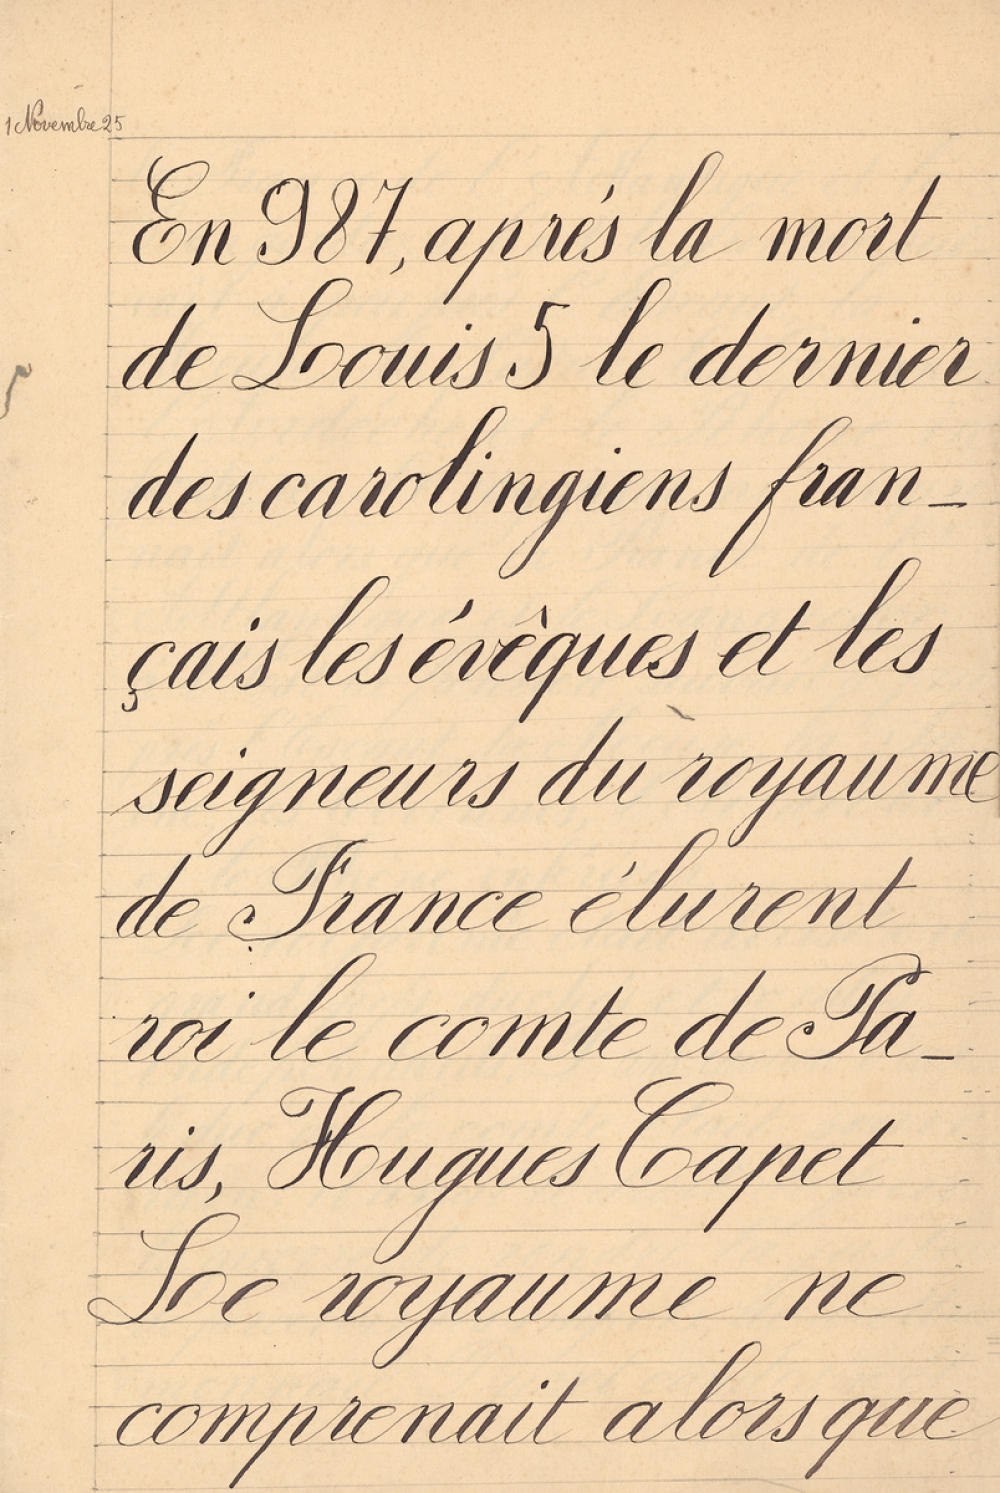 1 Novembre 25
En 987, aprés la mort
de Louis 5 le dernier
des carolingiens fran-
çais les évêques et les
seigneurs du royaume
de France élurent
roi le comte de Pa-
ris, Hugues Capet
Le royaume ne
comprenait alors que